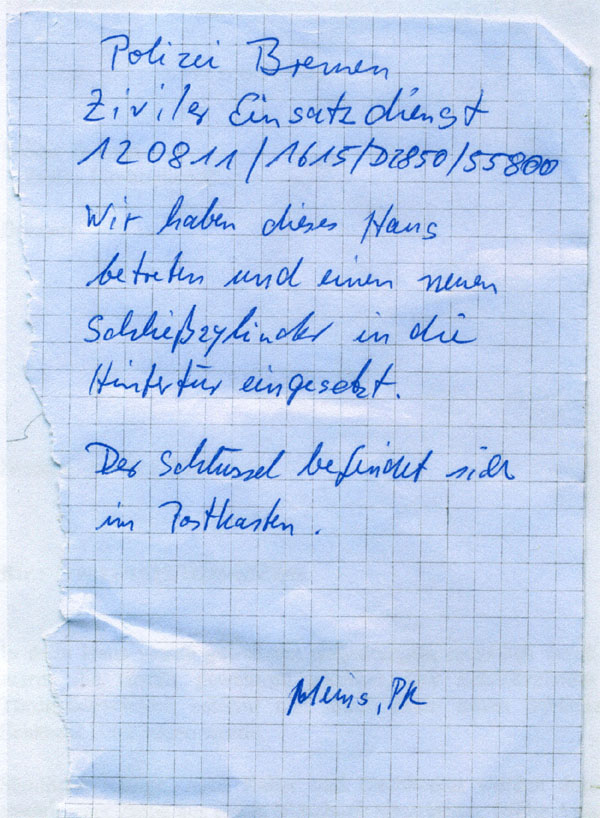 Polizei Bremen
Ziviler Einsatzdienst
120811/1615/D2850/55800
Wir haben dieses Haus
betreten und einen neuen
Schließzylinder in die
Hintertür eingesetzt.
Der Schlüssel befindet sich
im Postkasten.
, PK